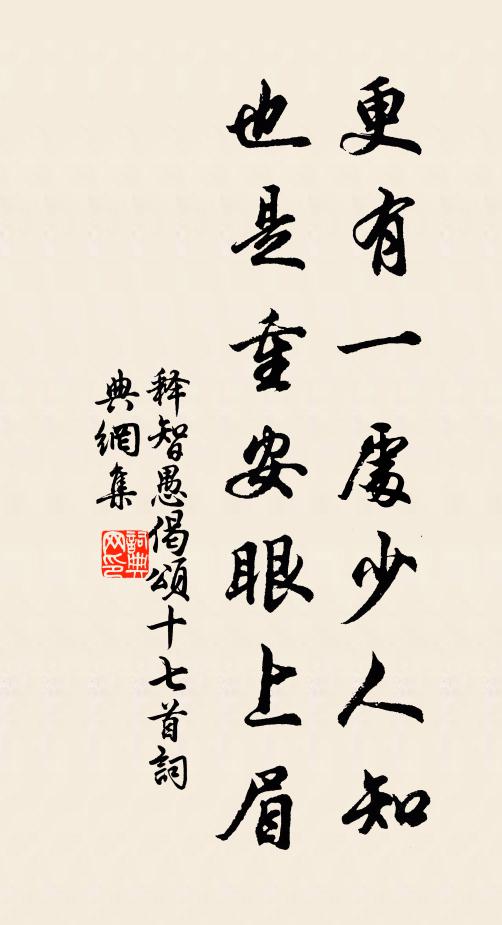 更有一處少人知
也是重安眼上眉
释智愚偈頌十七首詞
典網集
詞典
网印